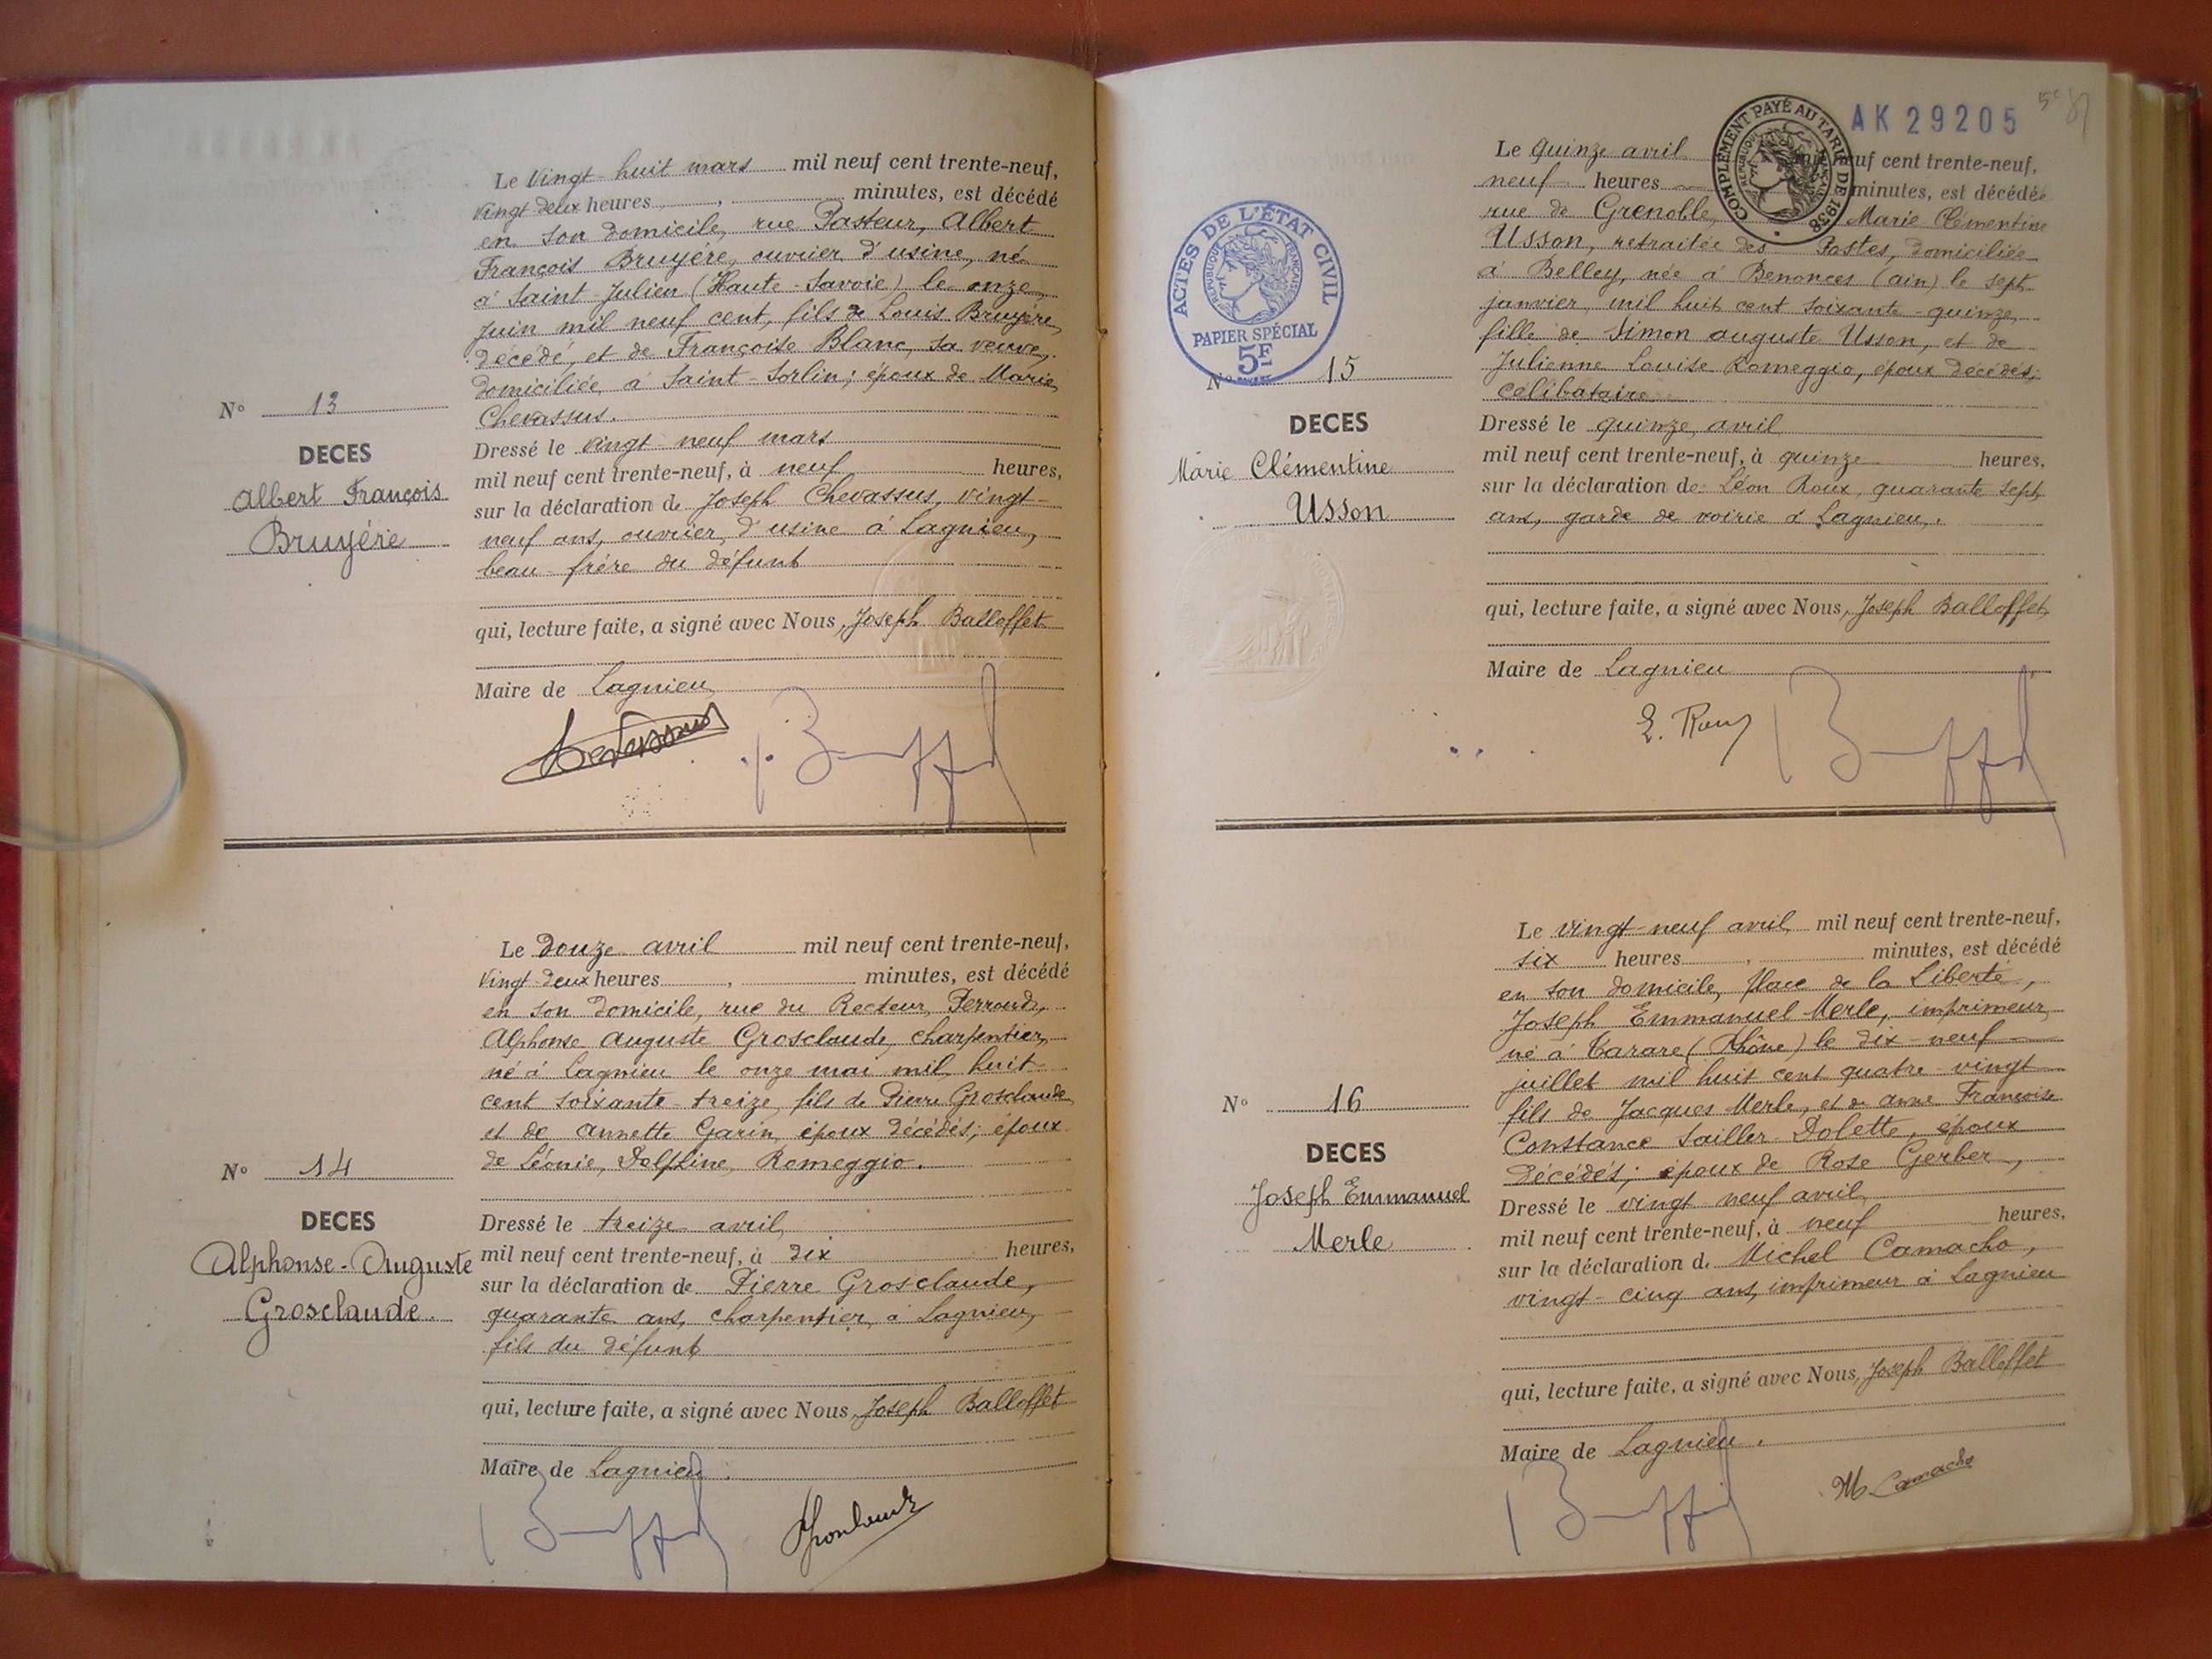 Le vingt-huit mars mil neuf cent trente-neuf,
vingt deux heures, minutes, est décédé
en son domicile, rue Pasteur, Albert
François Bruyére, ouvrier d'usine, né
à Saint-Julien (Haute-Savoie) le onze
juin mil neuf cent, fils de Louis Bruyére,
décédé, et de Françoise Blanc, sa veuve,
domiciliée à Saint-Sorlin; époux de Marie
Chevassus.
N° 13
DECES
Albert François
Bruyére
Dressé le vingt-neuf mars
mil neuf cent trente-neuf, à neuf heures,
sur la déclaration de Joseph Chevassus, vingt-
neuf ans, ouvrier d'usine à Lagnieu,
beau-frére du défunt
qui, lecture faite, a signé avec Nous, Joseph Balloffet
Maire de Lagnieu
Le douze avril mil neuf cent trente-neuf,
vingt-deux heures, minutes, est décédé
en son domicile, rue du Recteur Perroud,
Alphonse Auguste Grosclaude, charpentier,
né à Lagnieu le onze mai mil huit
cent soixante-treize, fils de Pierre Grosclaude
et de Annette Garin, époux décédés; époux
de Léonie, Delphine, Romeggio.
N° 14
DECES
Alphonse-Auguste
Grosclaude.
Dressé le treize avril
mil neuf cent trente-neuf, à dix heures,
sur la déclaration de Pierre Grosclaude,
quarante ans, charpentier, à Lagnieu,
fils du défunt
qui, lecture faite, a signé avec Nous, Joseph Balloffet
Maire de Lagnieu.
AK 29205
COMPLÉMENT PAYÉ AU TARIF DE 1938
RÉPUBLIQUE FRANÇAISE
Le quinze avril neuf cent trente-neuf,
neuf heures minutes, est décédée
rue de Grenoble, Marie Clémentine
Usson, retraitée des Postes, domiciliée
à Belley, née à Benonces (ain) le sept
janvier, mil huit cent soixante-quinze,
fille de Simon auguste Usson, et de
Julienne Louise Romeggio, époux décédés;
célibataire
ACTES DE L'ÉTAT CIVIL
RÉPUBLIQUE FRANÇAISE
PAPIER SPÉCIAL
5F
N° 15
DECES
Marie Clémentine
Usson
Dressé le quinze avril
mil neuf cent trente-neuf, à quinze heures,
sur la déclaration de Léon Roux, quarante sept
ans, garde de voirie à Lagnieu.
qui, lecture faite, a signé avec Nous, Joseph Balloffet,
Maire de Lagnieu
Le vingt-neuf avril mil neuf cent trente-neuf,
six heures, minutes, est décédé
en son domicile, place de la Liberté,
Joseph Emmanuel Merle, imprimeur,
né à Tarare (Rhône) le dix-neuf
juillet mil huit cent quatre-vingt
fils de Jacques Merle, et de anne Françoise
Constance Sailler-Dolette, époux
décédés; époux de Rose Gerber,
N° 16
DECES
Joseph Emmanuel
Merle
Dressé le vingt neuf avril
mil neuf cent trente-neuf, à neuf heures,
sur la déclaration de Michel Camacho,
vingt-cinq ans, imprimeur à Lagnieu
qui, lecture faite, a signé avec Nous, Joseph Balloffet
Maire de Lagnieu.
M. Camacho